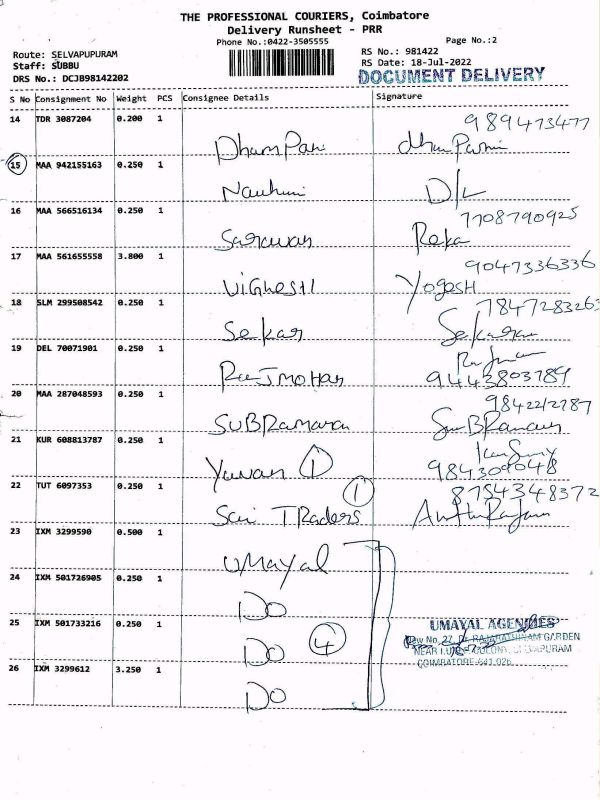 THE PROFESSIONAL COURIERS, Coimbatore
Delivery Runsheet - PRR
Phone No.:0422-3505555
Page No.:2
Route: SELVAPUPURAM
RS No.: 981422
Staff: SUBBU
RS Date: 18-Jul-2022
DRS No.: DCJB98142202
DOCUMENT DELIVERY
S No Consignment No Weight PCS Consignee Details Signature
14 TDR 3087204 0.200 1
989473477
DhamPani
15 MAA 942155163 0.250 1
D/L
16 MAA 566516134 0.250 1
7708790925
Sarawan Reka
17 MAA 561655558 3.800 1
9047336336
VIGHESH YogesH
18 SLM 299508542 0.250 1
7847283263
Sekar Sekaran
19 DEL 70071901 0.250 1
RAJMOHAN 9443803789
20 MAA 287048593 0.250 1
SUBRamara
21 KUR 608813787 0.250 1
Yuvan 1 984309048
22 TUT 6097353 0.250 1
1 8754348372
Sai TRaders
23 IXM 3299590 0.500 1
UMayal
24 IXM 501726905 0.250 1
DO
25 IXM 501733216 0.250 1
UMAYAL AGENCIES
New No. 27, Dr. RAJARATHINAM GARDEN
DO 4
COIMBATORE-641 026.
26 IXM 3299612 3.250 1
DO